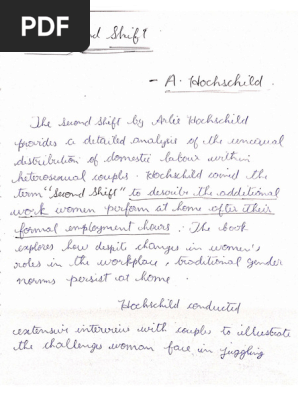 PDF
nd Shift
- A. Hochschild.
The Second Shift by Arlie Hochschild
provides a detailed analysis of the unequal
distribution of domestic labour within
heterosexual couples. Hochschild coined the
term "Second Shift" to describe the additional
work women perform at home after their
formal employment hours. The book
explores how despite changes in women's
roles in the workplace, traditional gender
norms persist at home.
Hochschild conducted
extensive interviews with couples to illustrate
the challenges woman face in juggling